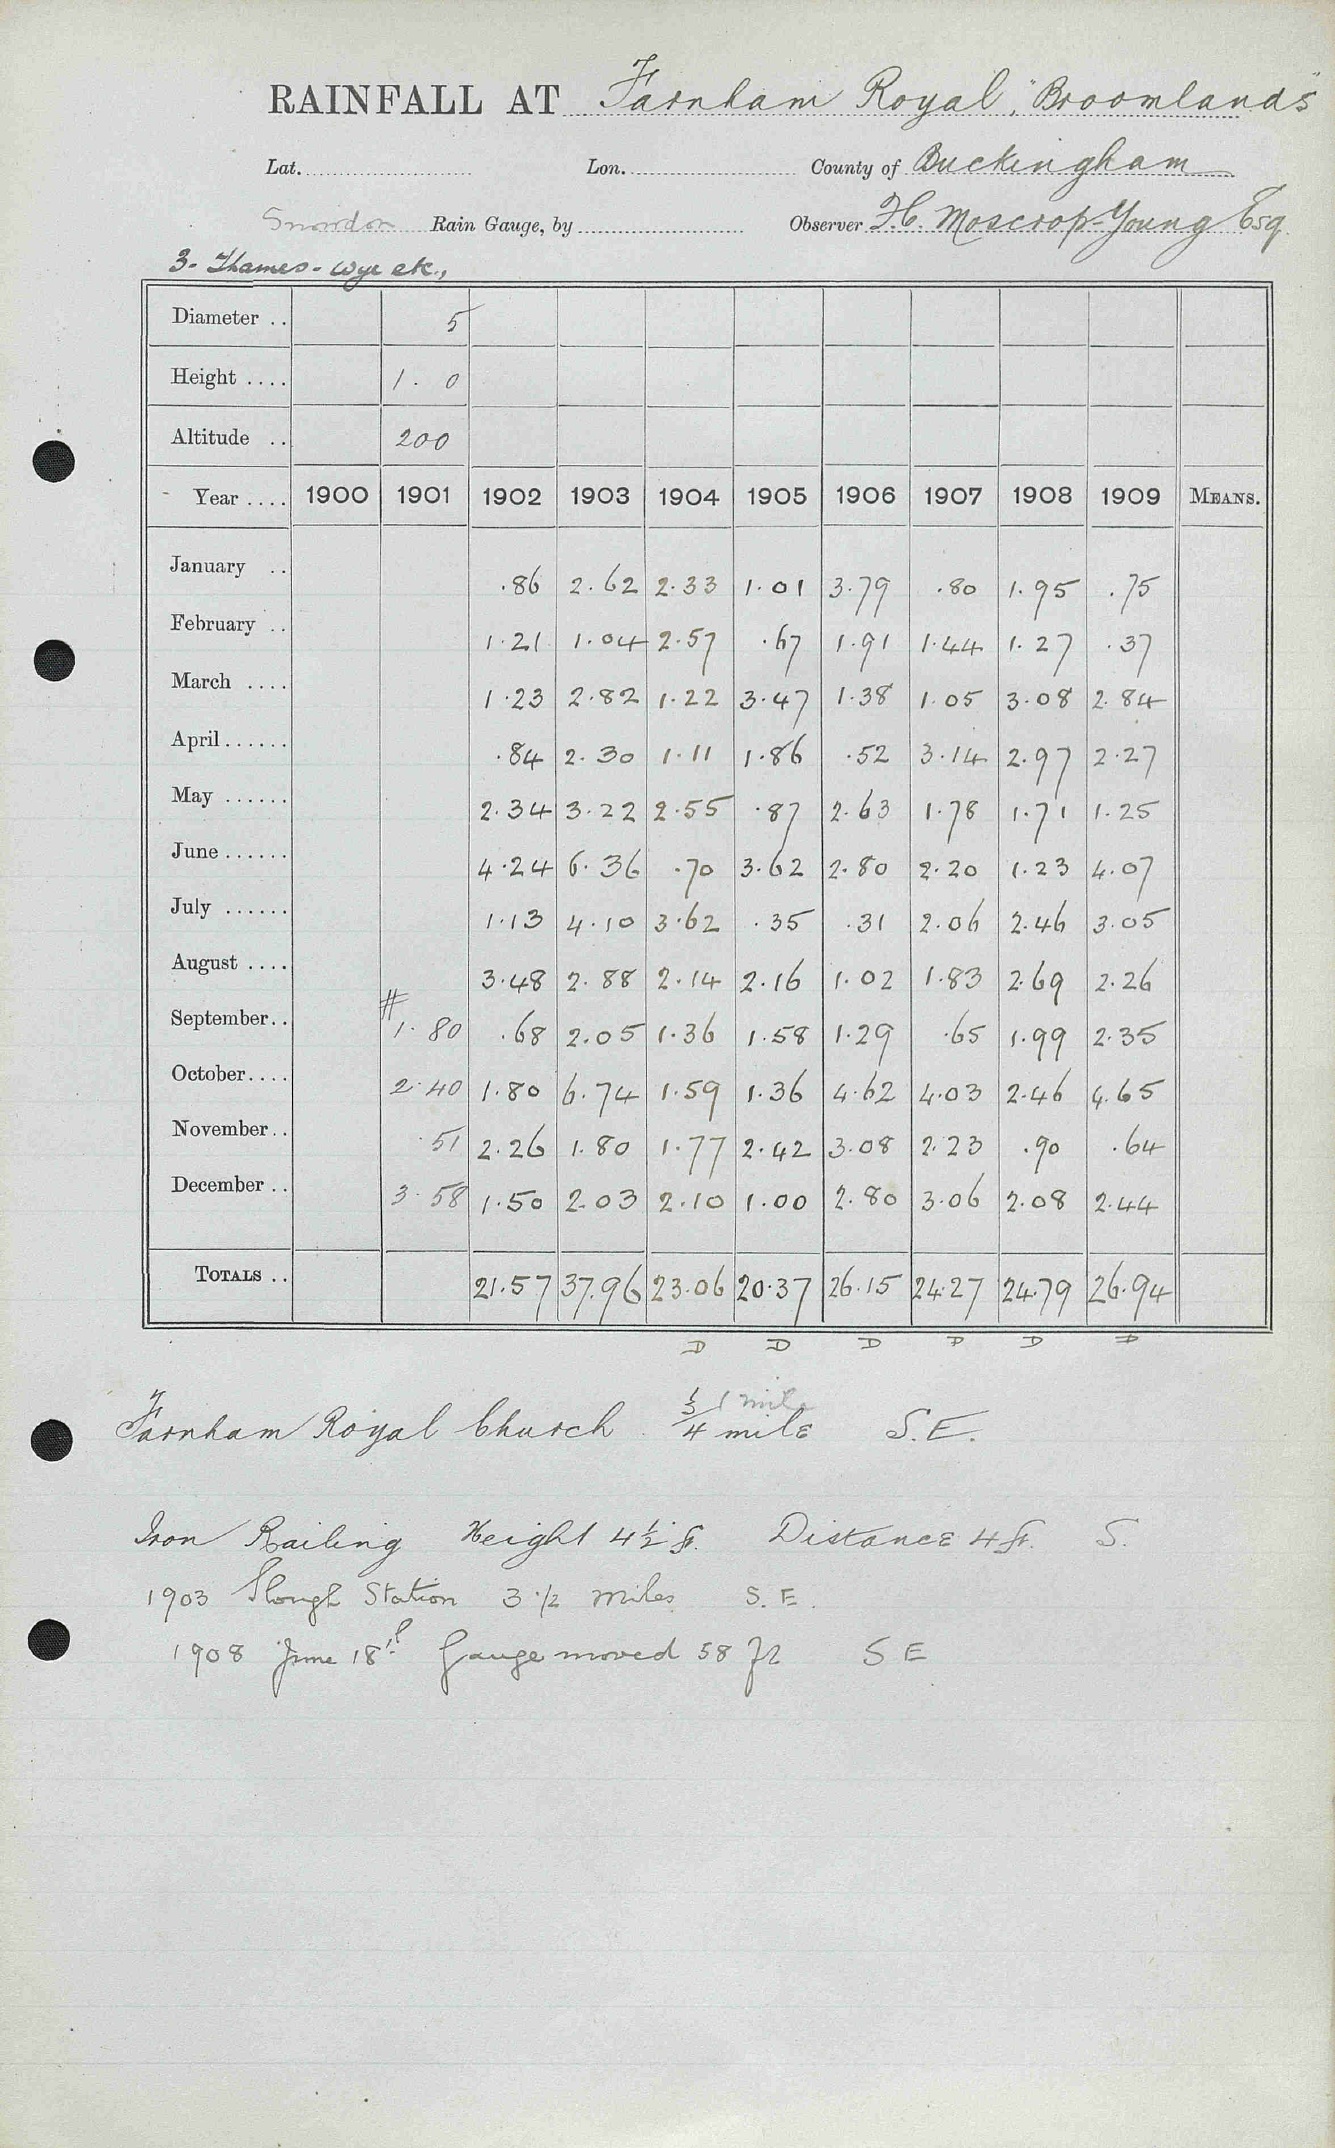 RAINFALL AT Farnham Royal, "Broomlands"
Lat. Lon. County of Buckingham
Snowdon Rain Gauge, by Observer H. Moscrop-Young Esq
3 - Thames - Wye etc.,
Diameter .. 5
Height .... 1. 0
Altitude .. 200
Year .... 1900 1901 1902 1903 1904 1905 1906 1907 1908 1909 MEANS.
January .. .86 2.62 2.33 1.01 3.79 .80 1.95 .75
February .. 1.21 1.04 2.57 .67 1.91 1.44 1.27 .37
March .... 1.23 2.82 1.22 3.47 1.38 1.05 3.08 2.84
April...... .84 2.30 1.11 1.86 .52 3.14 2.97 2.27
May ...... 2.34 3.22 2.55 .87 2.63 1.78 1.71 1.25
June...... 4.24 6.36 .70 3.62 2.80 2.20 1.23 4.07
July ...... 1.13 4.10 3.62 .35 .31 2.06 2.46 3.05
August .... 3.48 2.88 2.14 2.16 1.02 1.83 2.69 2.26
September.. # 1.80 .68 2.05 1.36 1.58 1.29 .65 1.99 2.35
October.... 2.40 1.80 6.74 1.59 1.36 4.62 4.03 2.46 4.65
November.. .51 2.26 1.80 1.77 2.42 3.08 2.23 .90 .64
December .. 3.58 1.50 2.03 2.10 1.00 2.80 3.06 2.08 2.44
TOTALS .. 21.57 37.96 23.06 20.37 26.15 24.27 24.79 26.94
D D D D D D
1 mile
Farnham Royal Church 3/4 mile S.E.
Iron Railing Height 4½ ft. Distance 4 ft. S.
1903 Slough Station 3 1/2 miles S.E.
1908 June 18th Gauge moved 58 ft S E